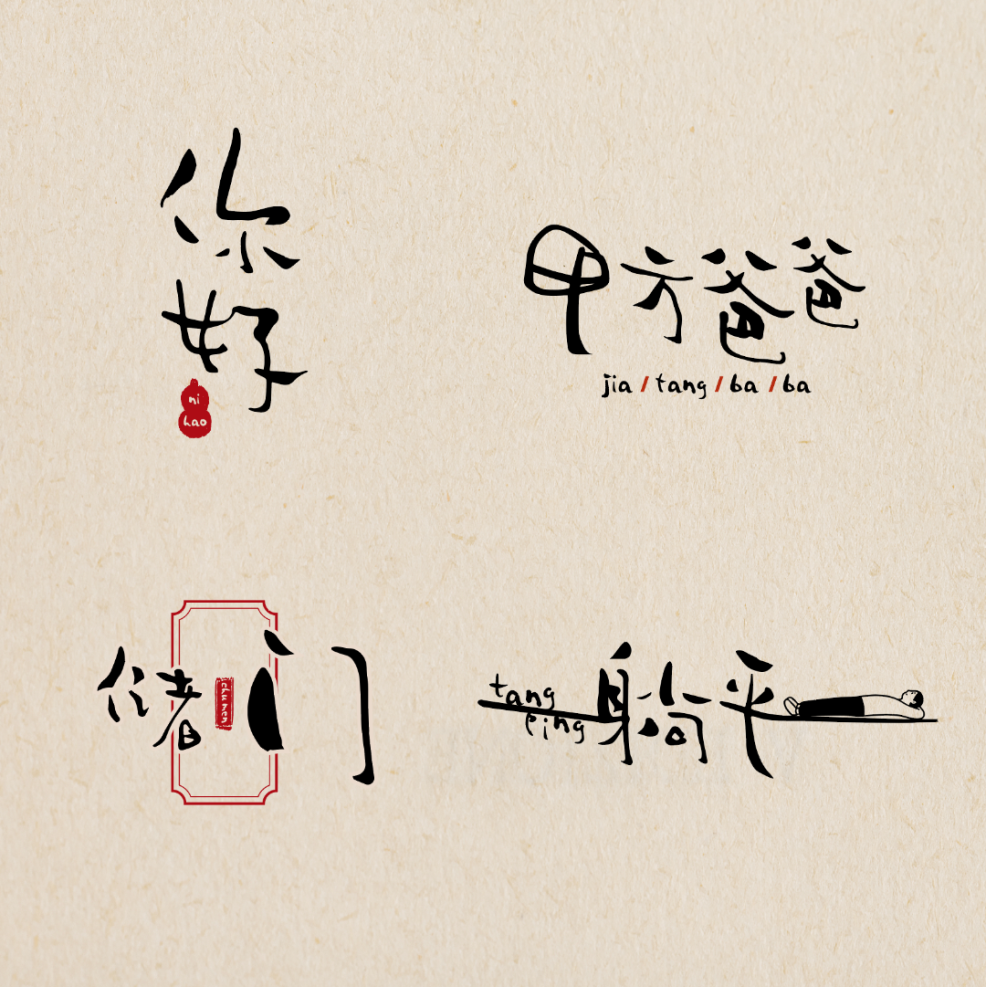 你
好
ni
hao
甲方爸爸
jia / tang / ba / ba
储门
chu men
躺平
tang
ping